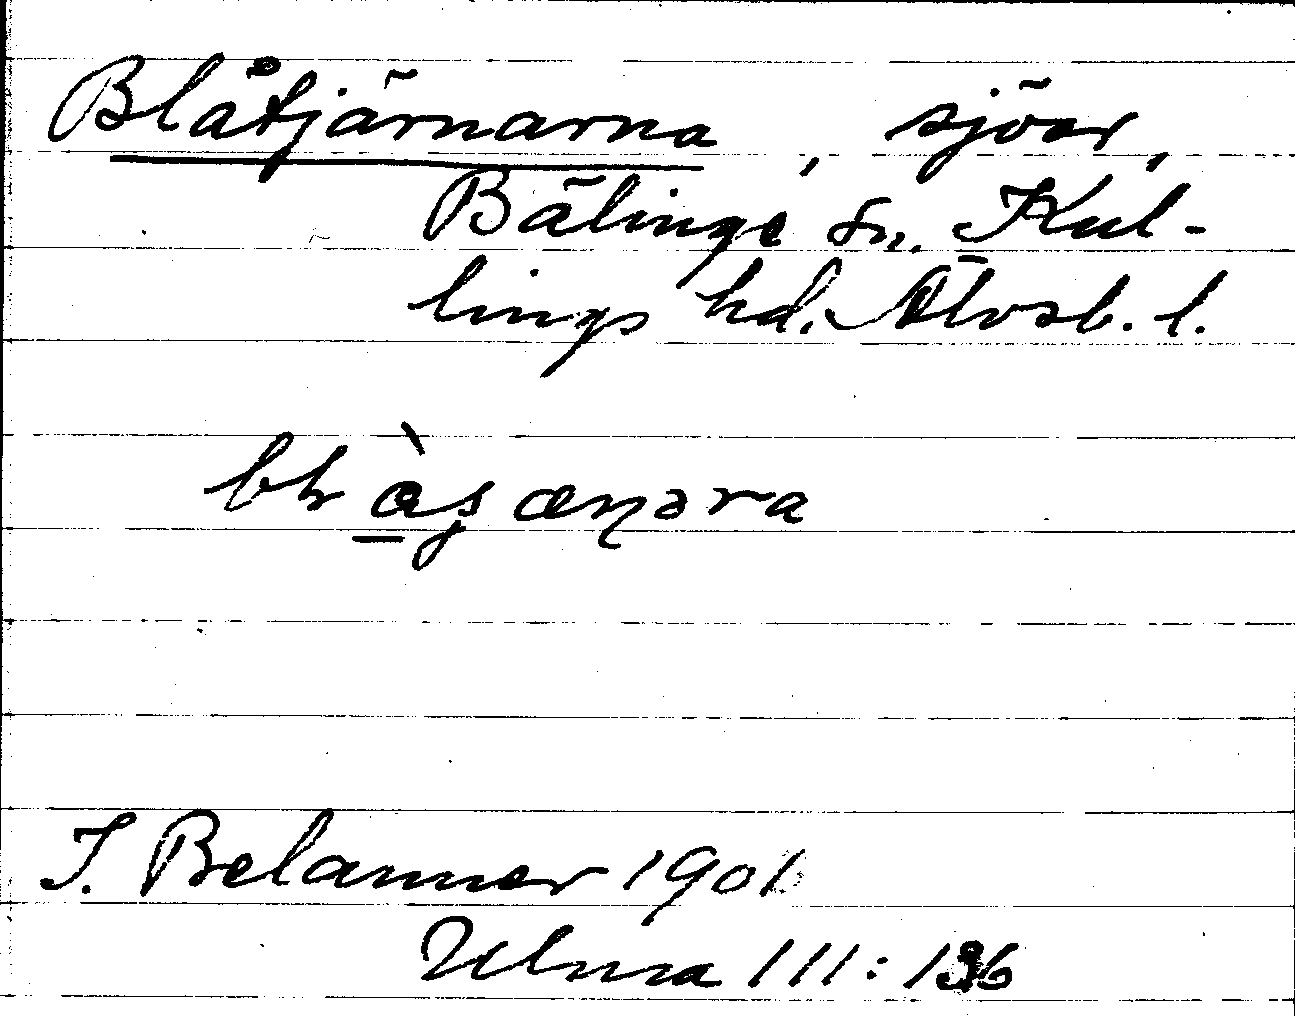 Blåtjärnarna, sjöar,
Bälinge sn. Kul-
lings hd. Älvsb. l.
J. Belanner 1901
Ulma 111:136